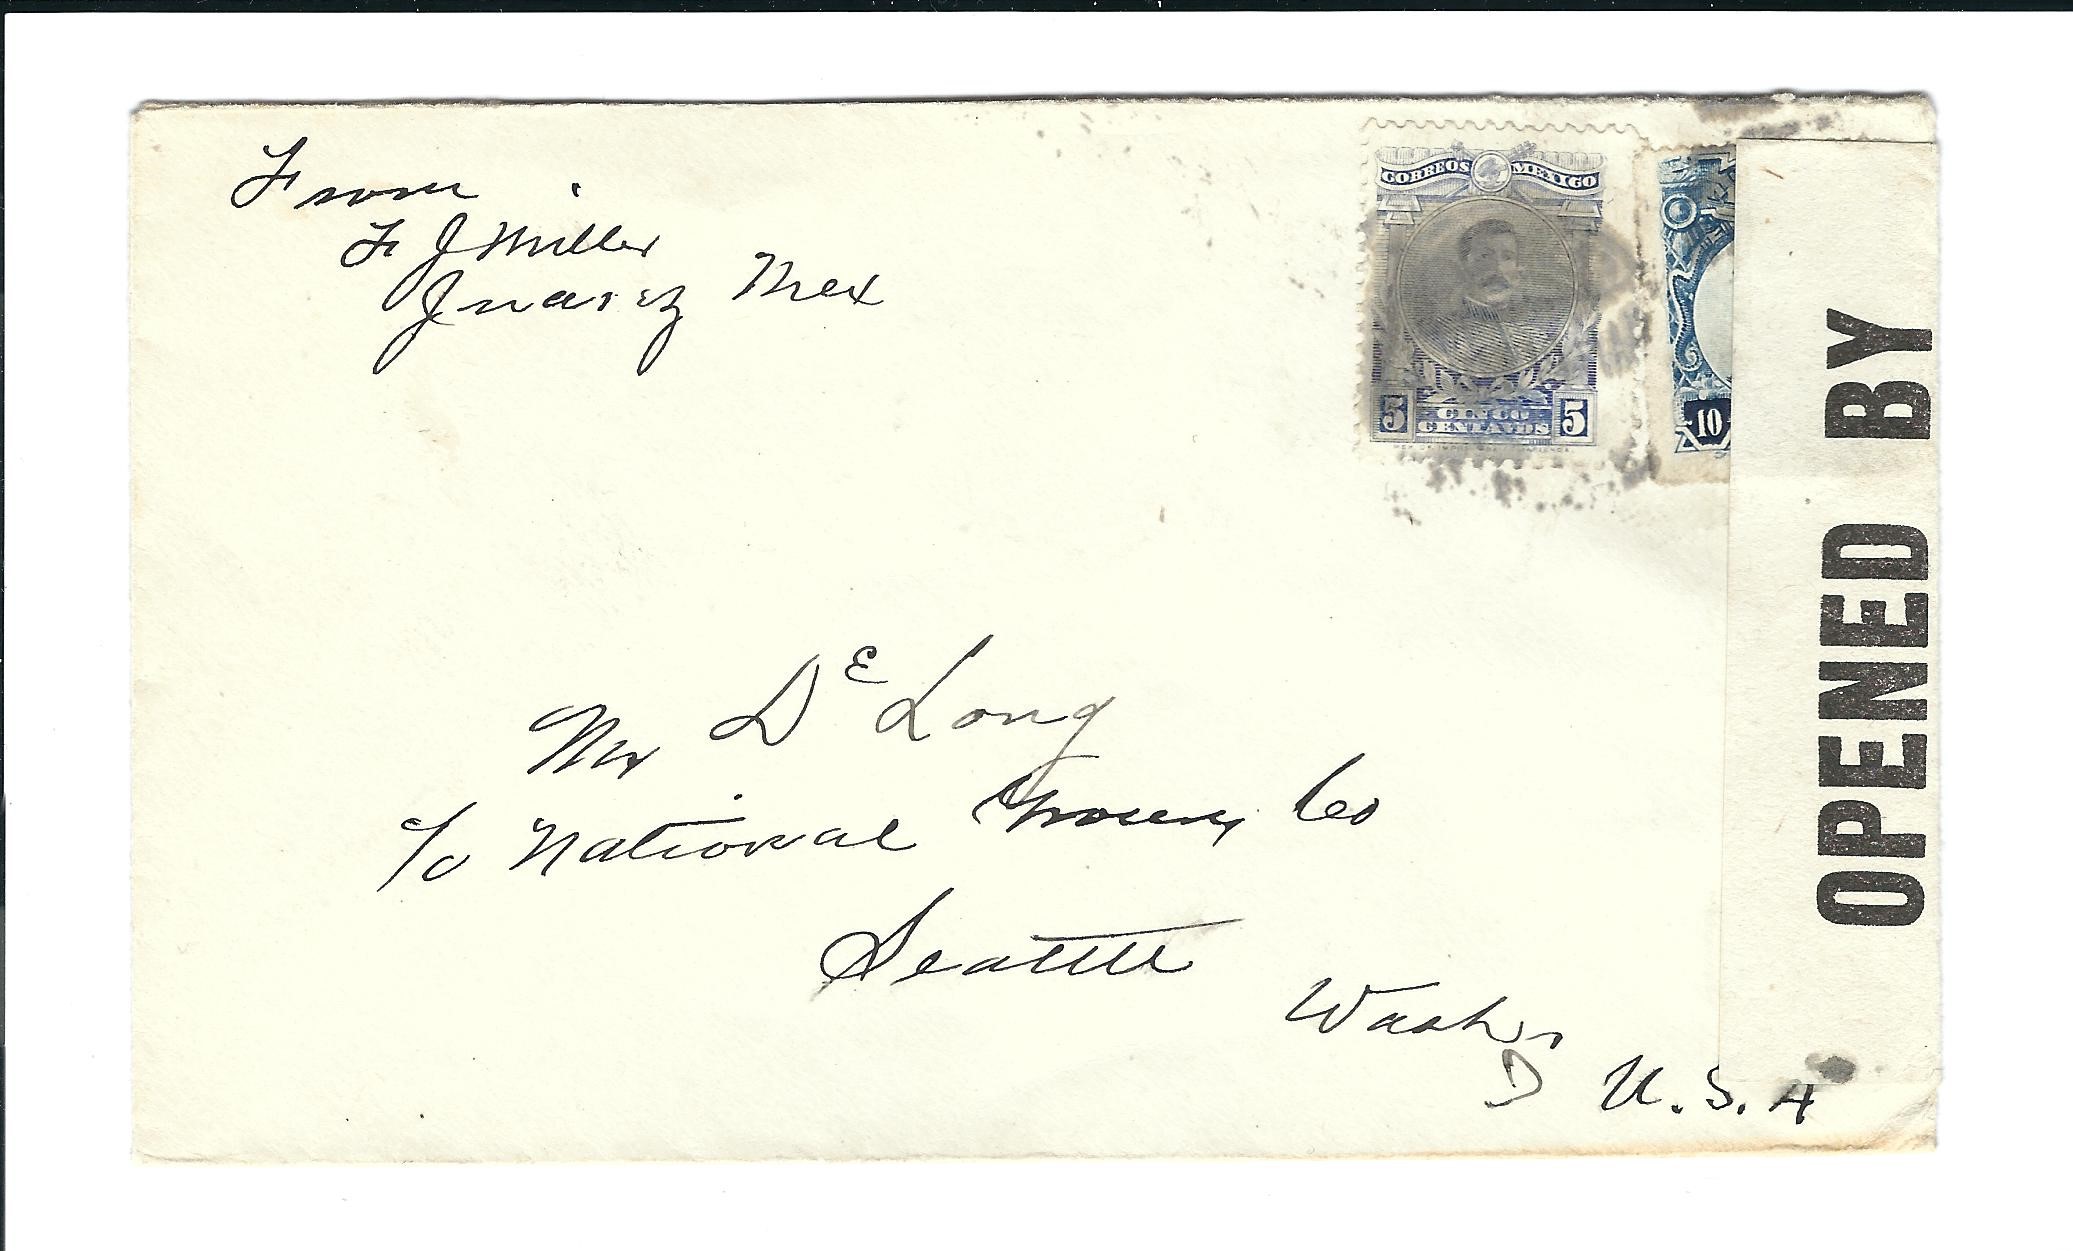 From
F J Miller
Juarez Mex
CORREOS MEXICO
5 CINCO CENTAVOS 5
10
OPENED BY
Mr DE Long
c/o National Grocery Co
Seattle
Wash
D U.S.A